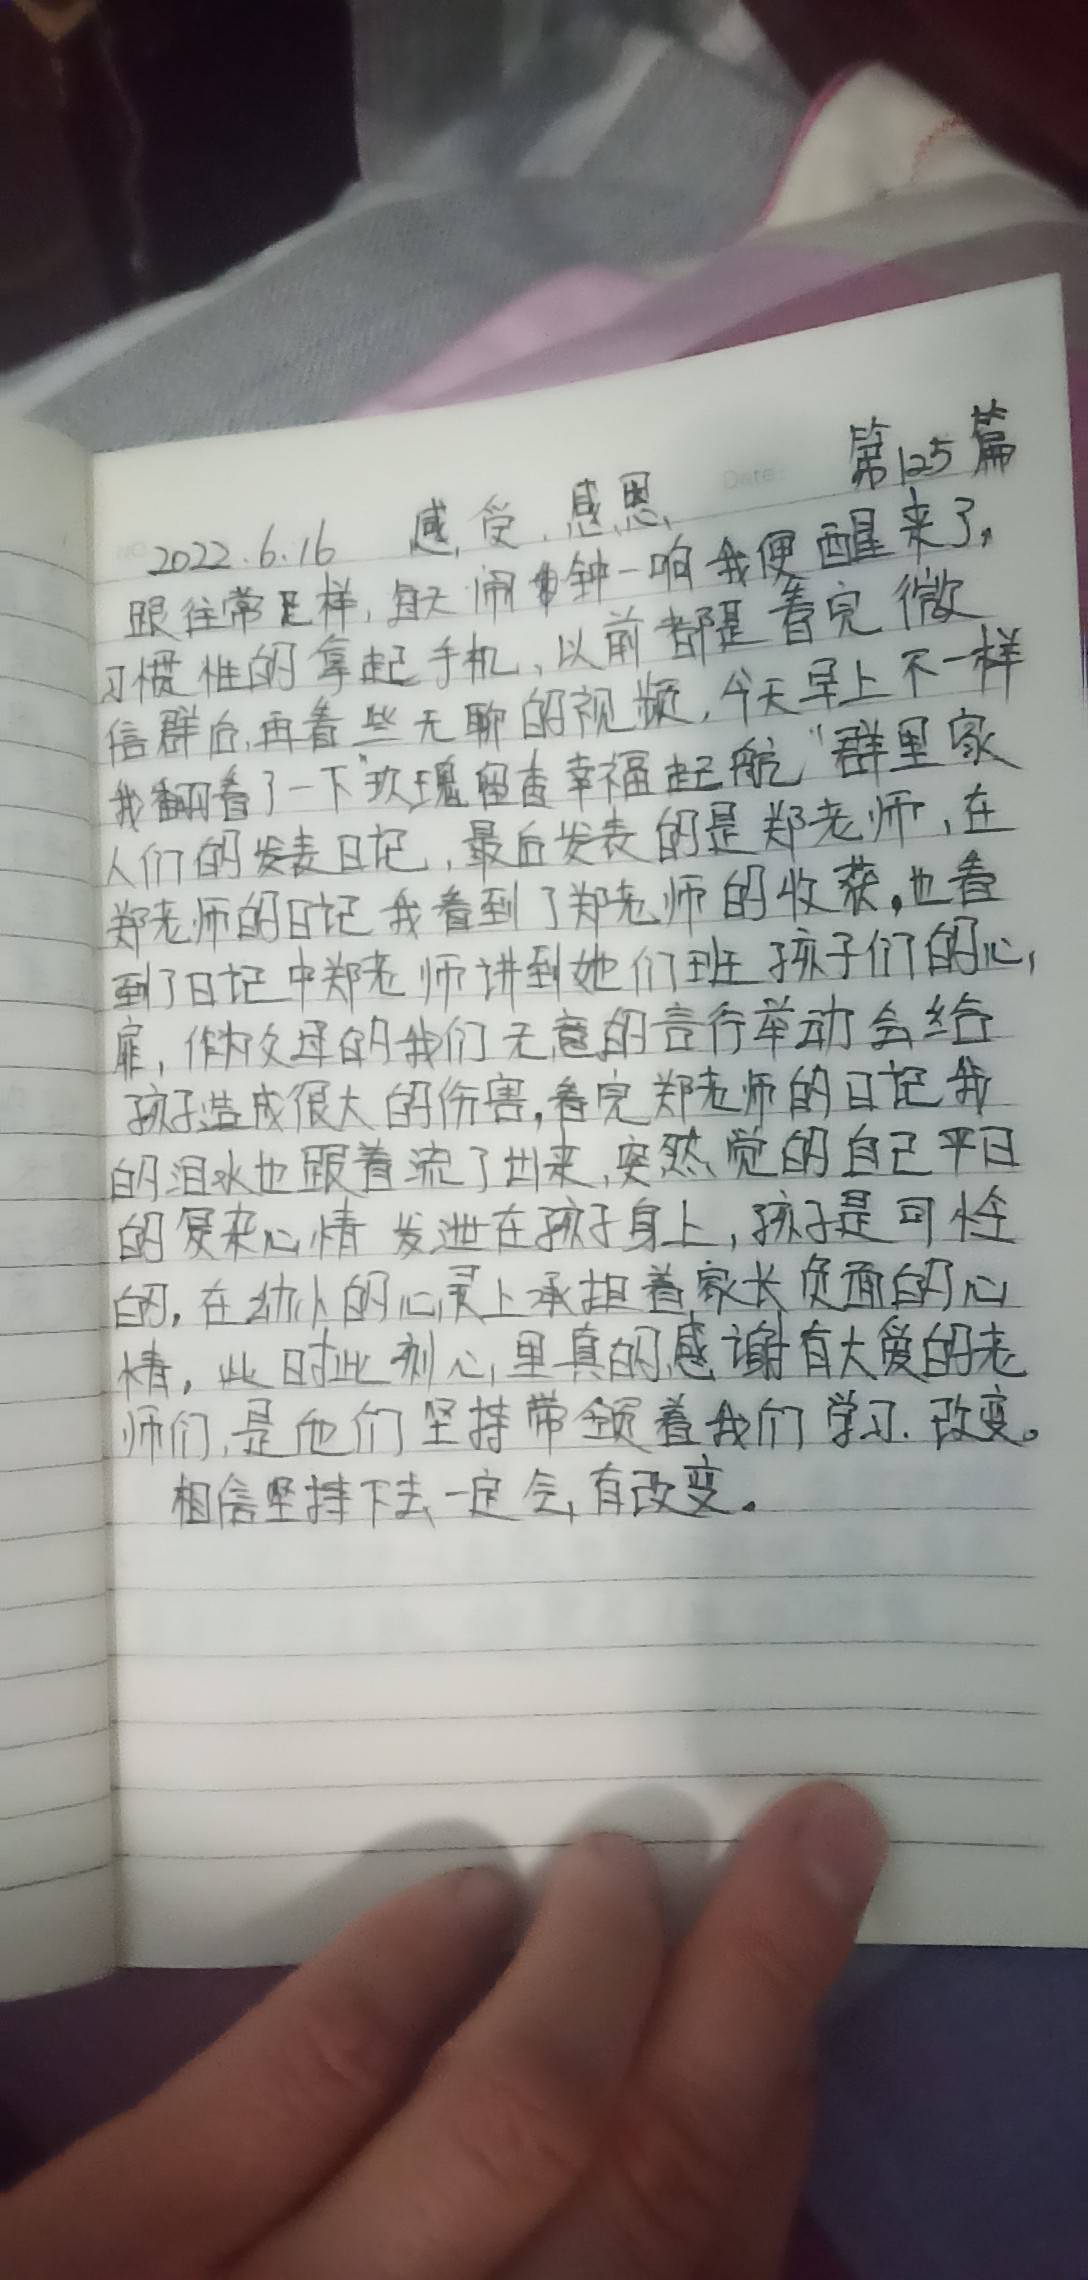 第125篇
2022.6.16 感受.感恩
跟往常一样,每天闹钟一响我便醒来了,
习惯性的拿起手机,以前都是看完微
信群后,再看些无聊的视频,今天早上不一样
我翻看了一下"玫瑰留香幸福起航"群里家
人们的发表日记,最后发表的是郑老师,在
郑老师的日记我看到了郑老师的收获,也看
到了日记中郑老师讲到她们班孩子们的心
扉,作为父母的我们无意的言行举动会给
孩子造成很大的伤害,看完郑老师的日记我
的泪水也跟着流了出来,突然觉的自己平日
的复杂心情发泄在孩子身上,孩子是可怜
的,在幼小的心灵上承担着家长负面的心
情,此时此刻心里真的感谢有大爱的老
师们,是他们坚持带领着我们学习.改变。
相信坚持下去一定会有改变。